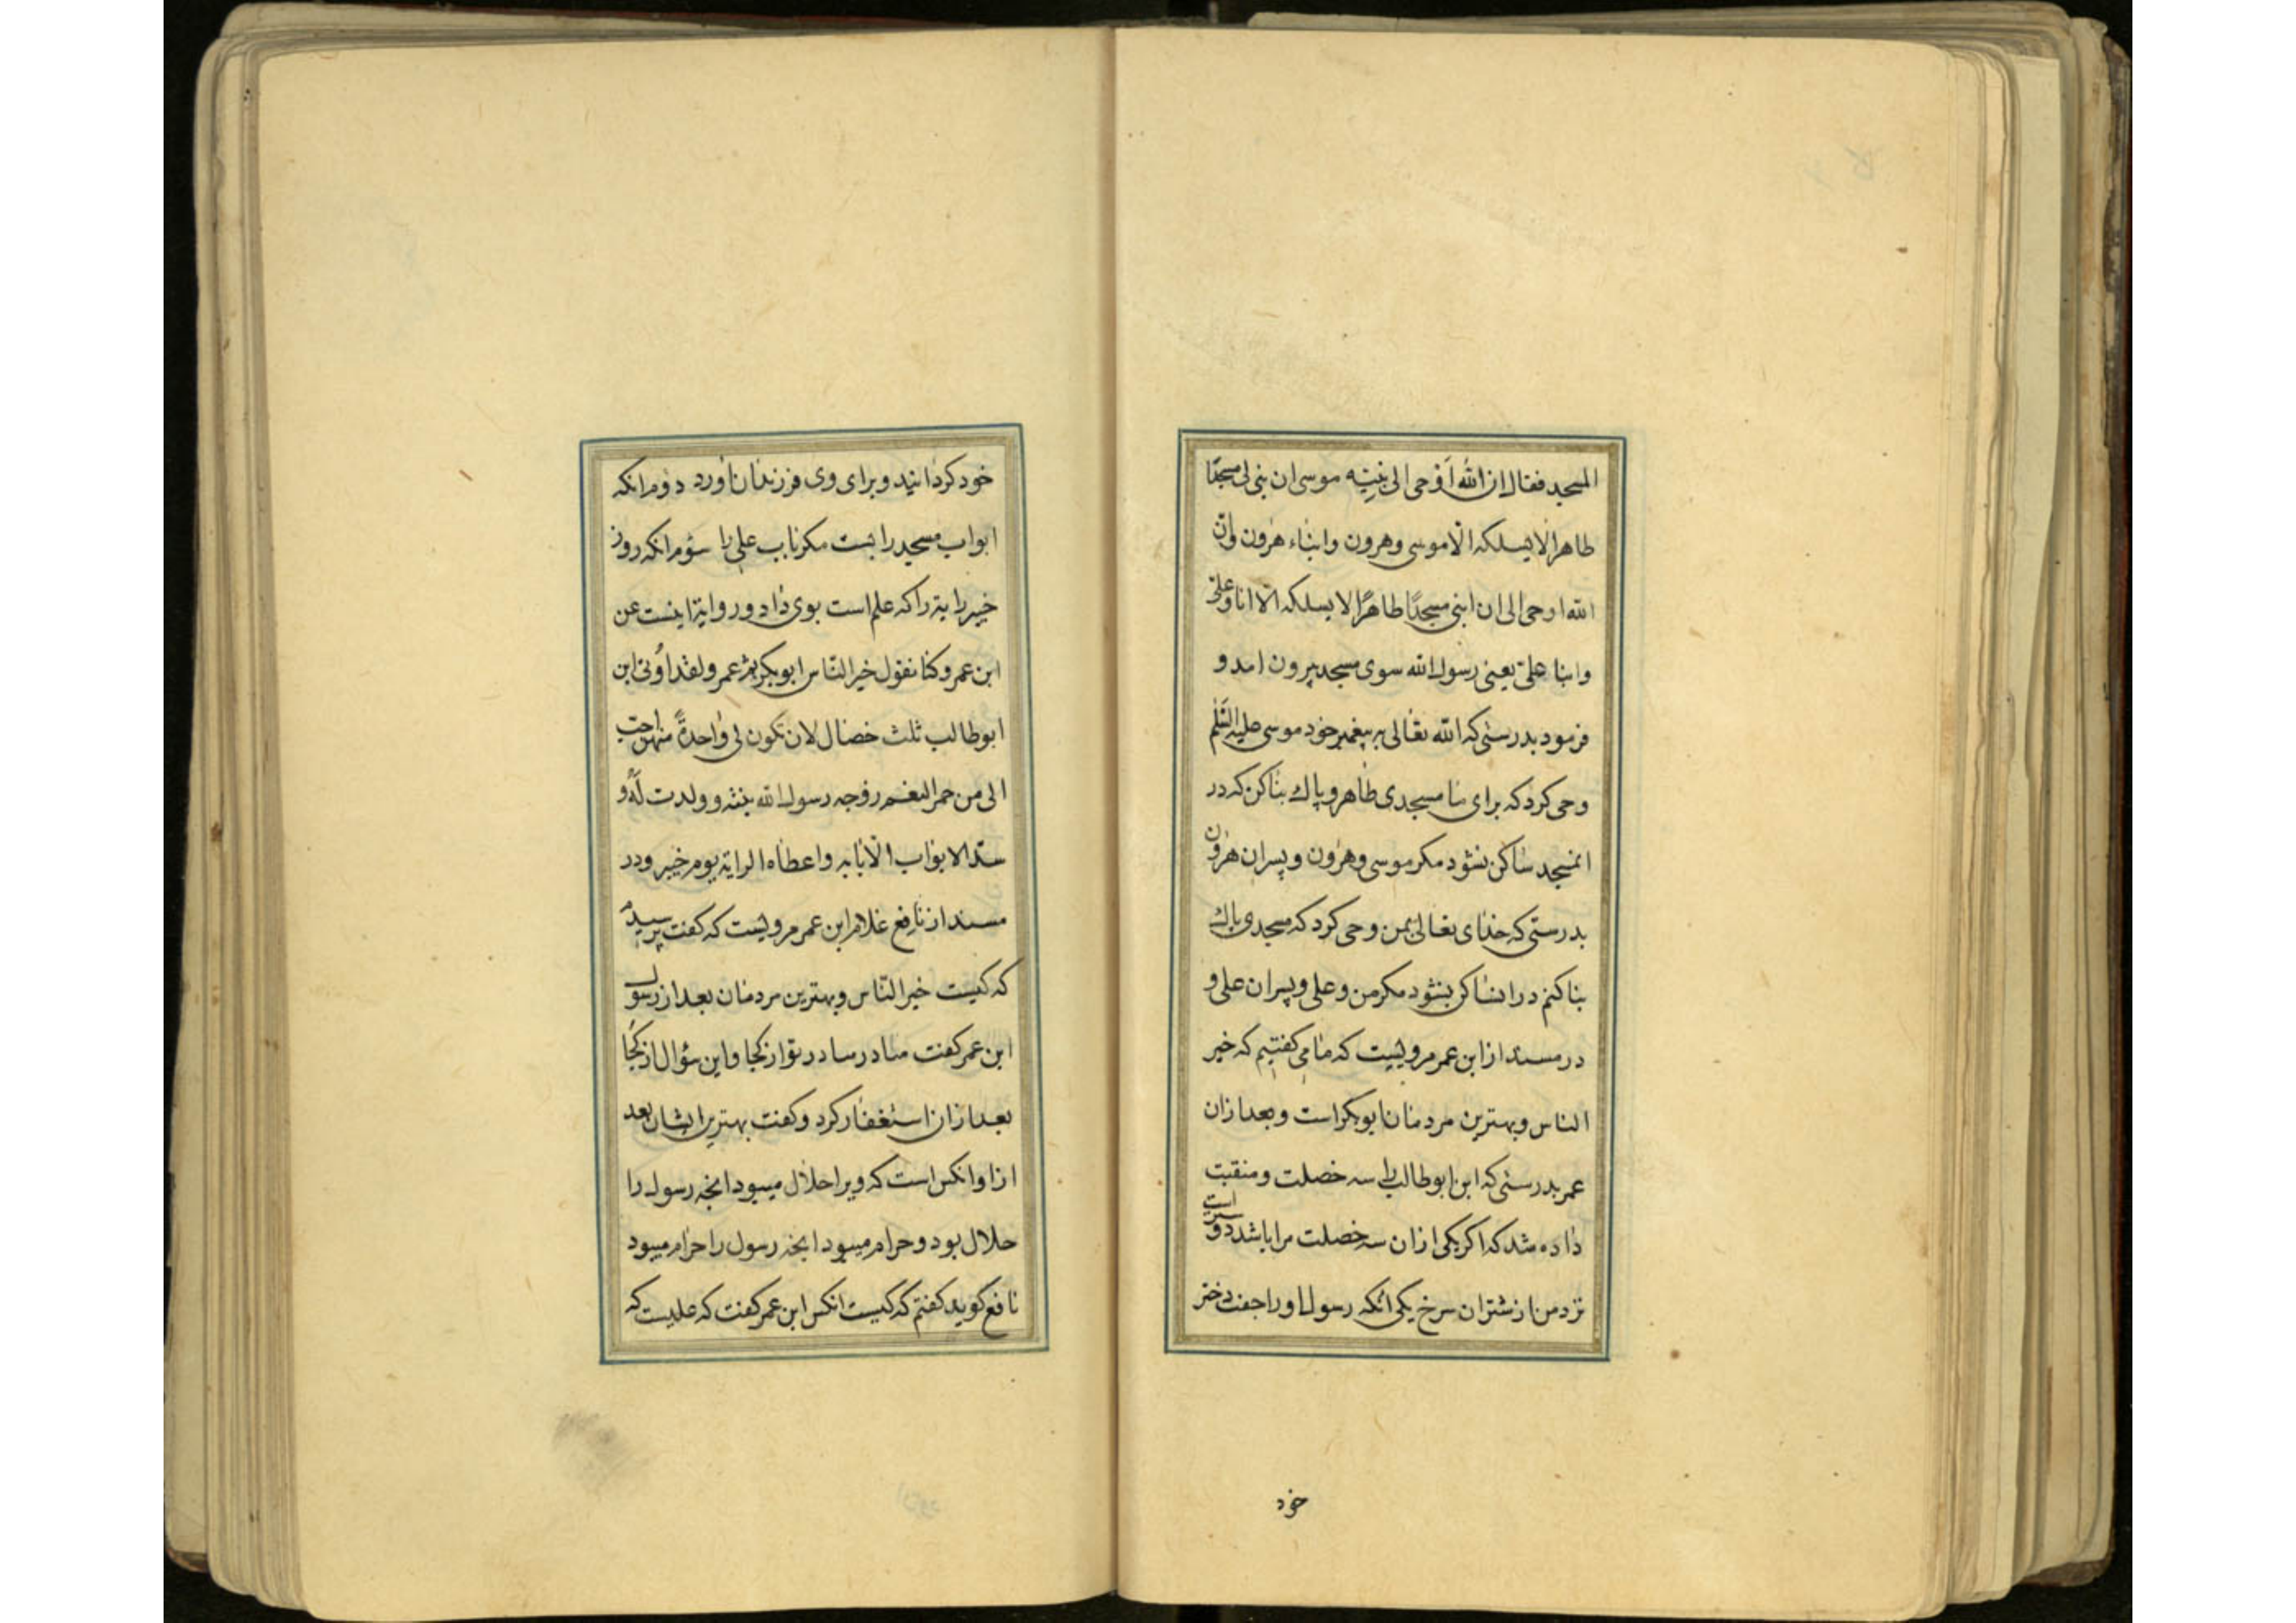 المسجد فقال ان الله اوحی الی نبیّه موسی ان بنی لی مسجدًا
طاهرا لا یسلکه الّا موسی وهرون وابناء هرون وانّ
الله اوحی الی ان ابنی مسجدًا طاهرًا لا یسلکه الّا انا وعلیّ
وابنا علیّ یعنی رسول الله سوی مسجد بیرون امد و
فرمود بدرستی که الله تعالی به پیغمبر خود موسی علیه السّلم
وحی کرد که برای ما مسجدی طاهر و پاک بنا کن که در
انمسجد ساکن نشود مکر موسی وهرون و پسران هرون
بدرستی که خدای تعالی بمن وحی کرد که مسجدی پاک
بنا کنم در ان ساکن نشود مکر من و علی و پسران علی و
در مسند از ابن عمر مرویست که ما می کفتیم که خیر
الناس و بهترین مردمان ابوبکر است و بعد ازان
عمر بدرستی که ابن ابوطالب را سه خصلت و منقبت
داده شد که اکر یکی ازان سه خصلت مرا باشد دوستر است
نزد من از شتران سرخ یکی انکه رسول او را جفت دختر
خود
خود کردانید و برای وی فرزندان اورد دوم انکه
ابواب مسجد را ببست مکر باب علی را سوم انکه روز
خیبر رایة را که علم است بوی داد و روایة اینست عن
ابن عمر و کنا نقول خیر النّاس ابوبکر ثمّ عمر ولقد اُوتی ابن
ابوطالب ثلث خصال لان تکون لی واحدةً منهنّ احبّ
الی من حمر النعم زوجه رسول الله بنته وولدت لَهُ و
سدّ الابواب الّا بابه واعطاه الرایة یوم خیبر و در
مسند از نافع غلام ابن عمر مرویست که کفت پرسیدم
که کیست خیر النّاس و بهترین مردمان بعد از رسول
ابن عمر کفت مادر مادر تو از کجا و این سؤال از کجا
بعد ازان استغفار کرد و کفت بهترین ایشان بعد
ازاو انکس است که ویرا حلال میبود انچه رسول را
حلال بود و حرام میبود انچه رسول را حرام میبود
نافع کوید کفتم که کیست انکس ابن عمر کفت که علیست که